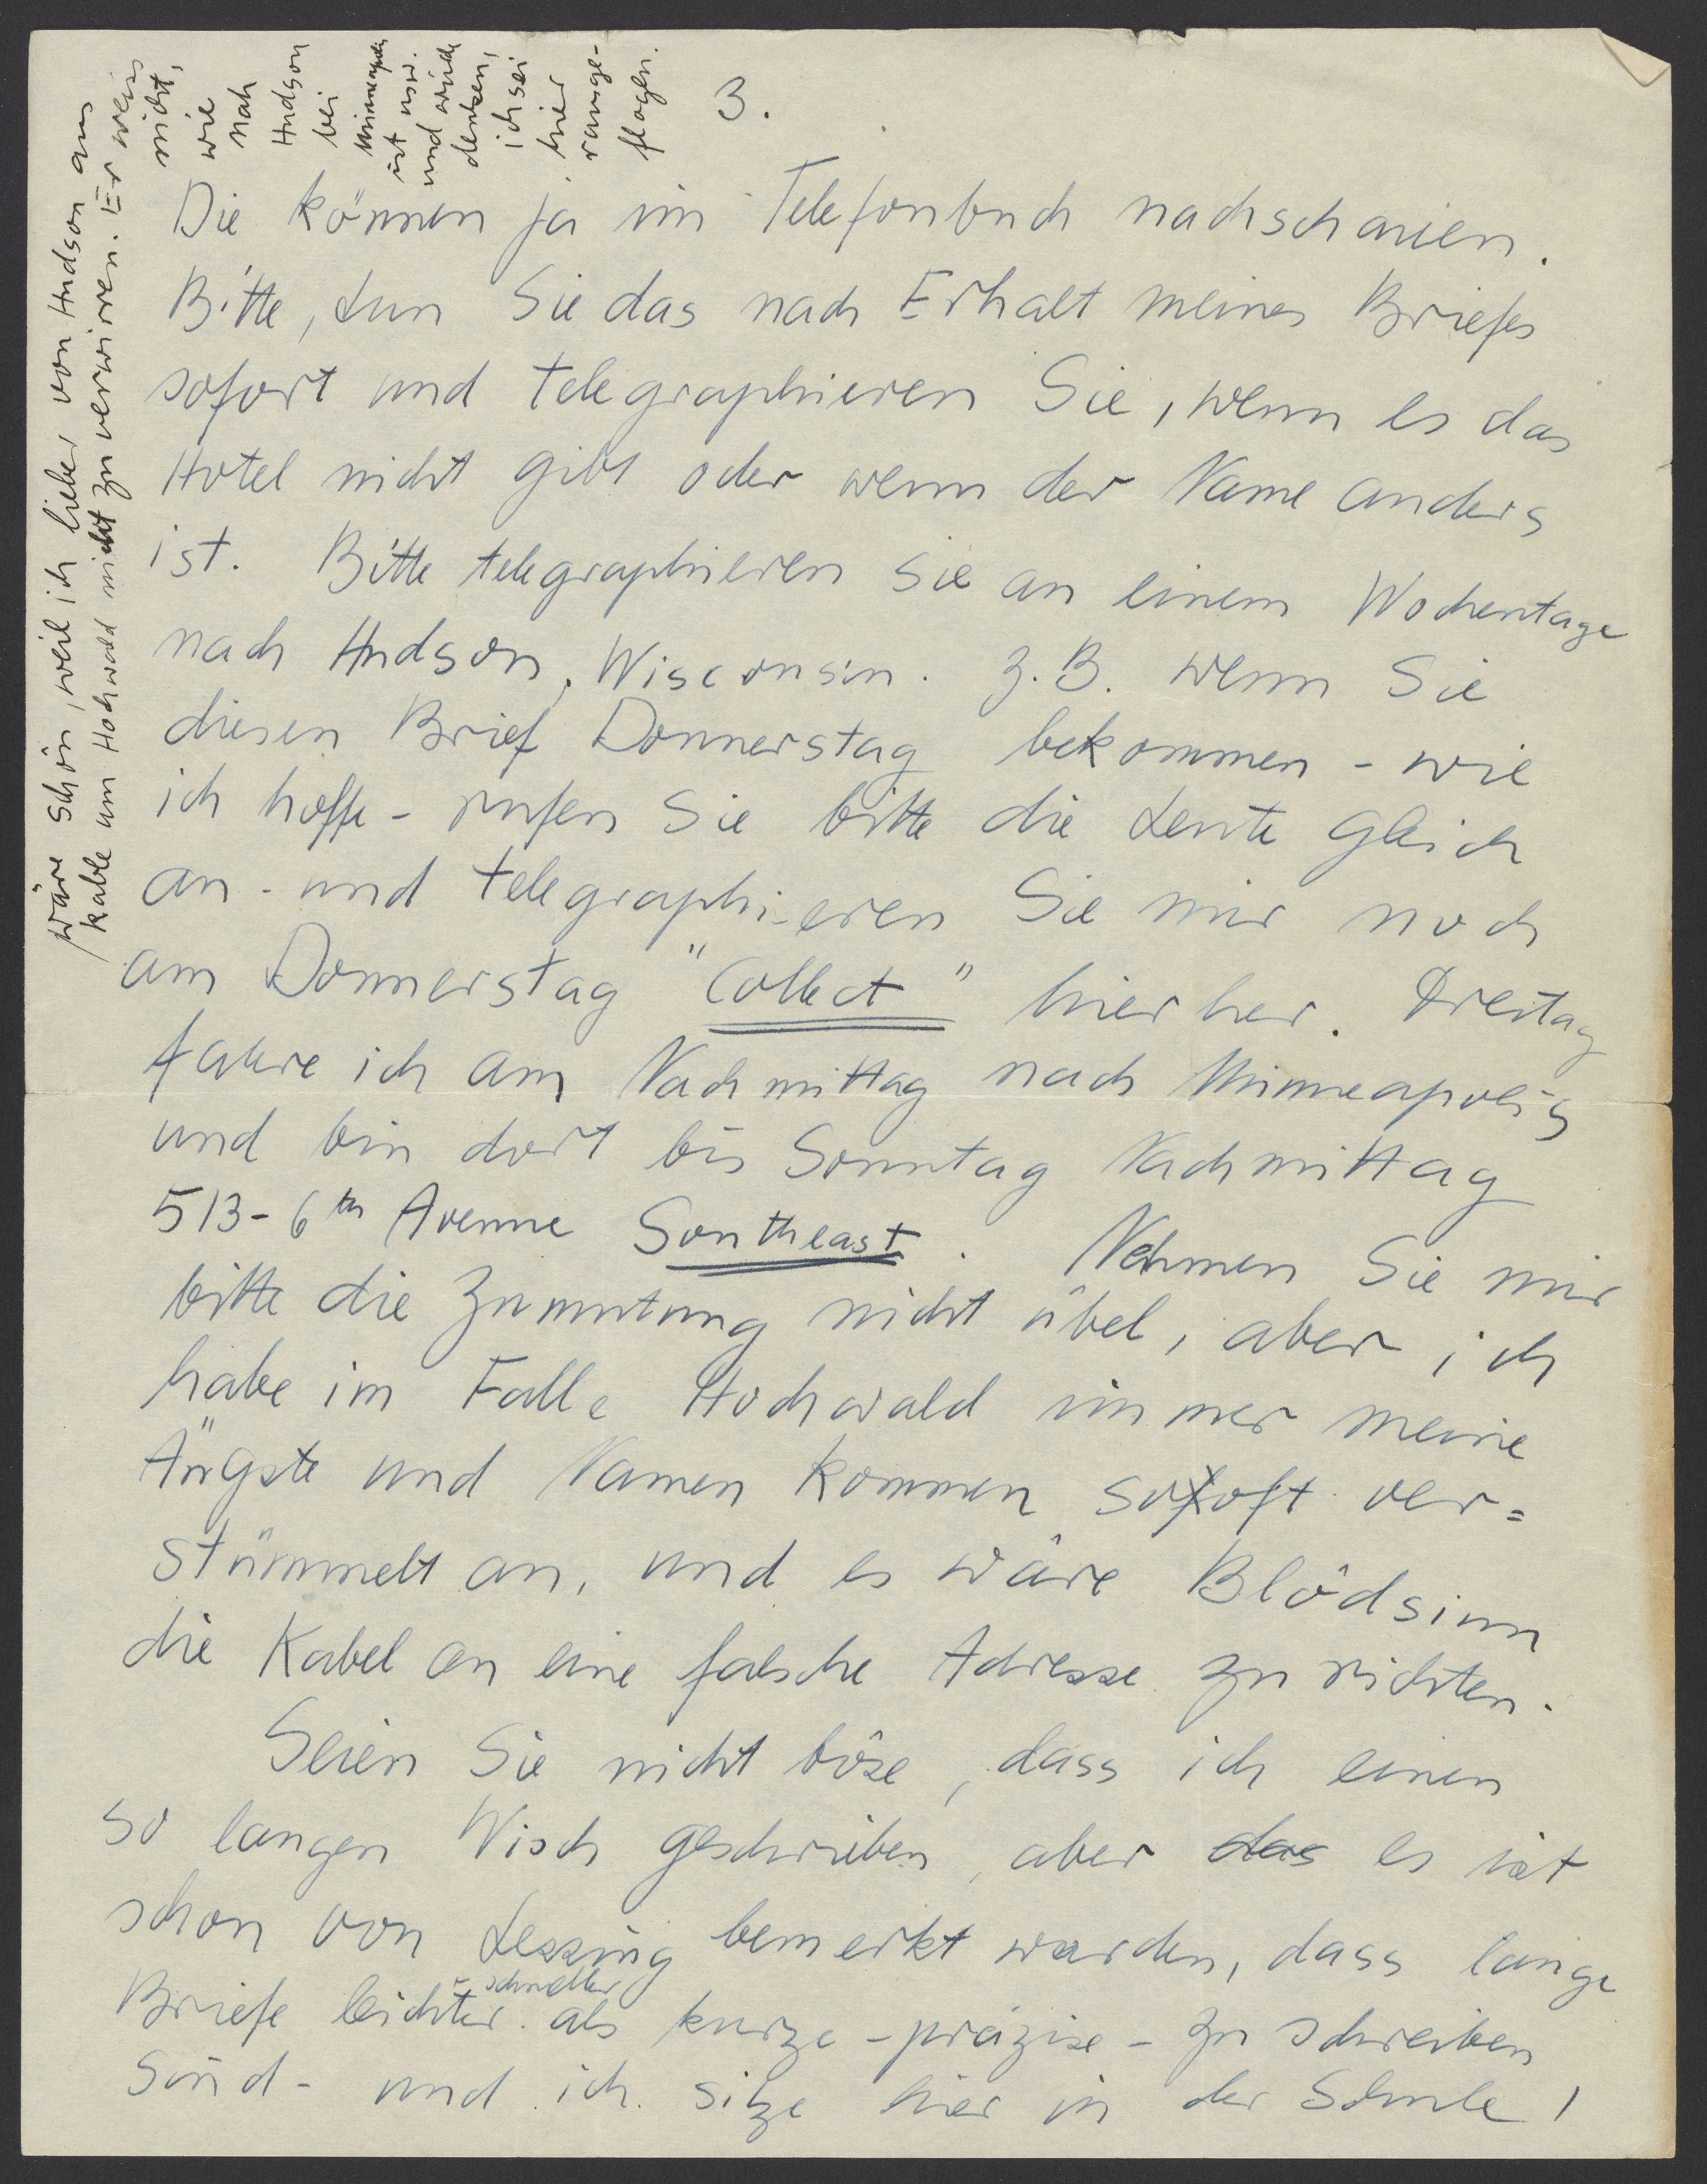 3.
Die können ja im Telefonbuch nachschauen.
Bitte, tun Sie das nach Erhalt meines Briefes
sofort und telegraphieren Sie, wenn es das
Hotel nicht gibt oder wenn der Name anders
ist. Bitte telegraphieren Sie an einem Wochentage
nach Hudson, Wisconsin. z.B. wenn Sie
diesen Brief Donnerstag bekommen - wie
ich hoffe - rufen Sie bitte die Leute gleich
an - und telegraphieren Sie mir noch
am Donnerstag "Collect" hierher. Freitag
fahre ich am Nachmittag nach Minneapolis
und bin dort bis Sonntag Nachmittag
513 - 6th Avenue Southeast. Nehmen Sie mir
bitte die Zumutung nicht übel, aber ich
habe im Falle Hochwald immer meine
Ängste und Namen kommen so oft ver=
stümmelt an, und es wäre Blödsinn
die Kabel an eine falsche Adresse zu richten.
Seien Sie nicht böse, dass ich einen
so langen Wisch geschrieben, aber das es ist
schon von Lessing bemerkt worden, dass lange
Briefe leichter - schneller als kurze - präzise - zu schreiben
sind - und ich sitze hier in der Schule!
wäre schön, weil ich lieber von Hudson aus
kable um Hochwald nicht zu verwirren. Er weiss
nicht,
wie
nah
Hudson
bei
Minneapolis
ist usw.
und würde
denken,
ich sei
hier
rausge-
flogen.